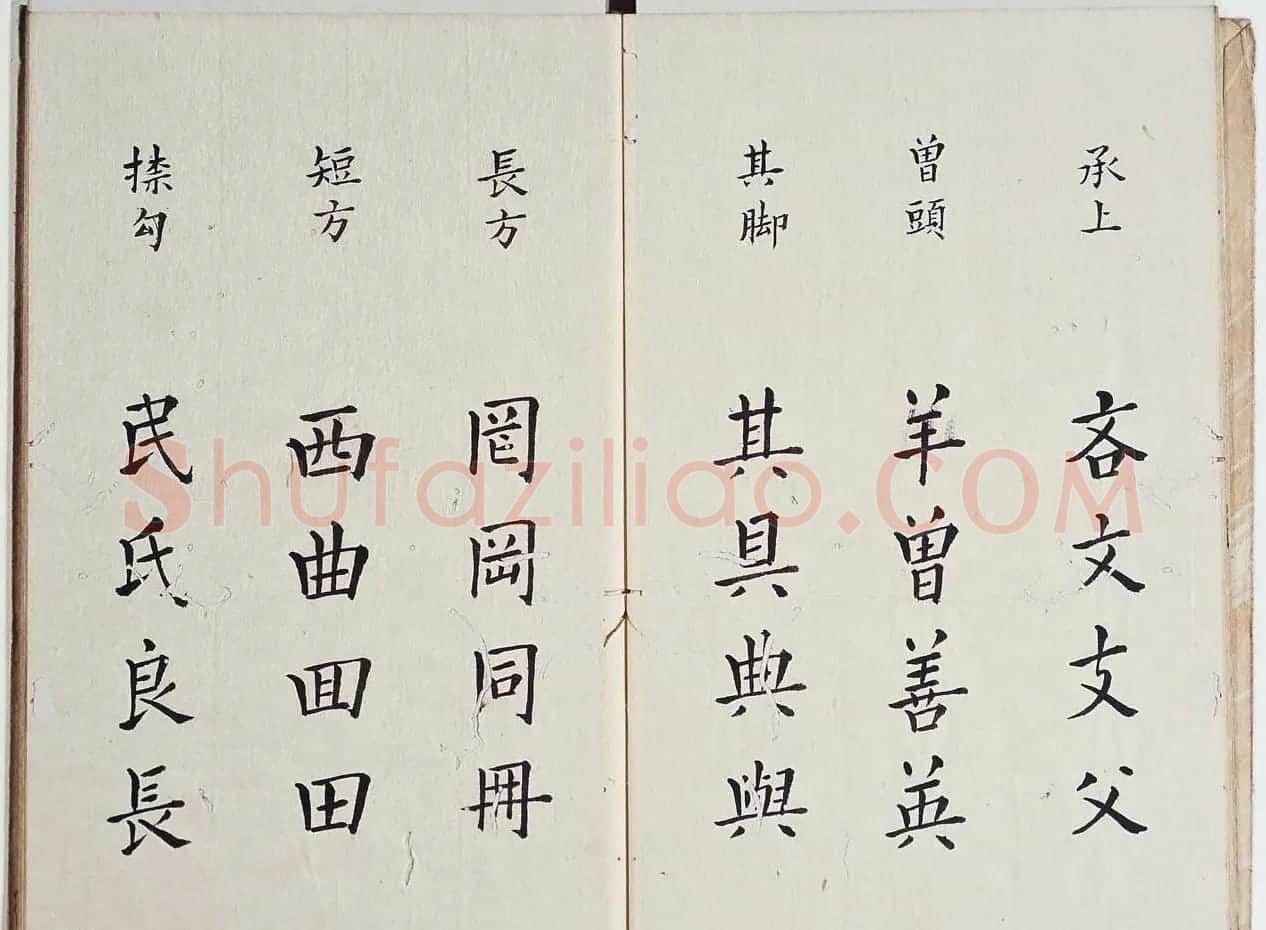 承上 吝文支父
曽頭 羊曽善英
其脚 其具典與
長方 罔岡同冊
短方 西曲囬田
捺勾 民氏良長
Shufaziliao.COM